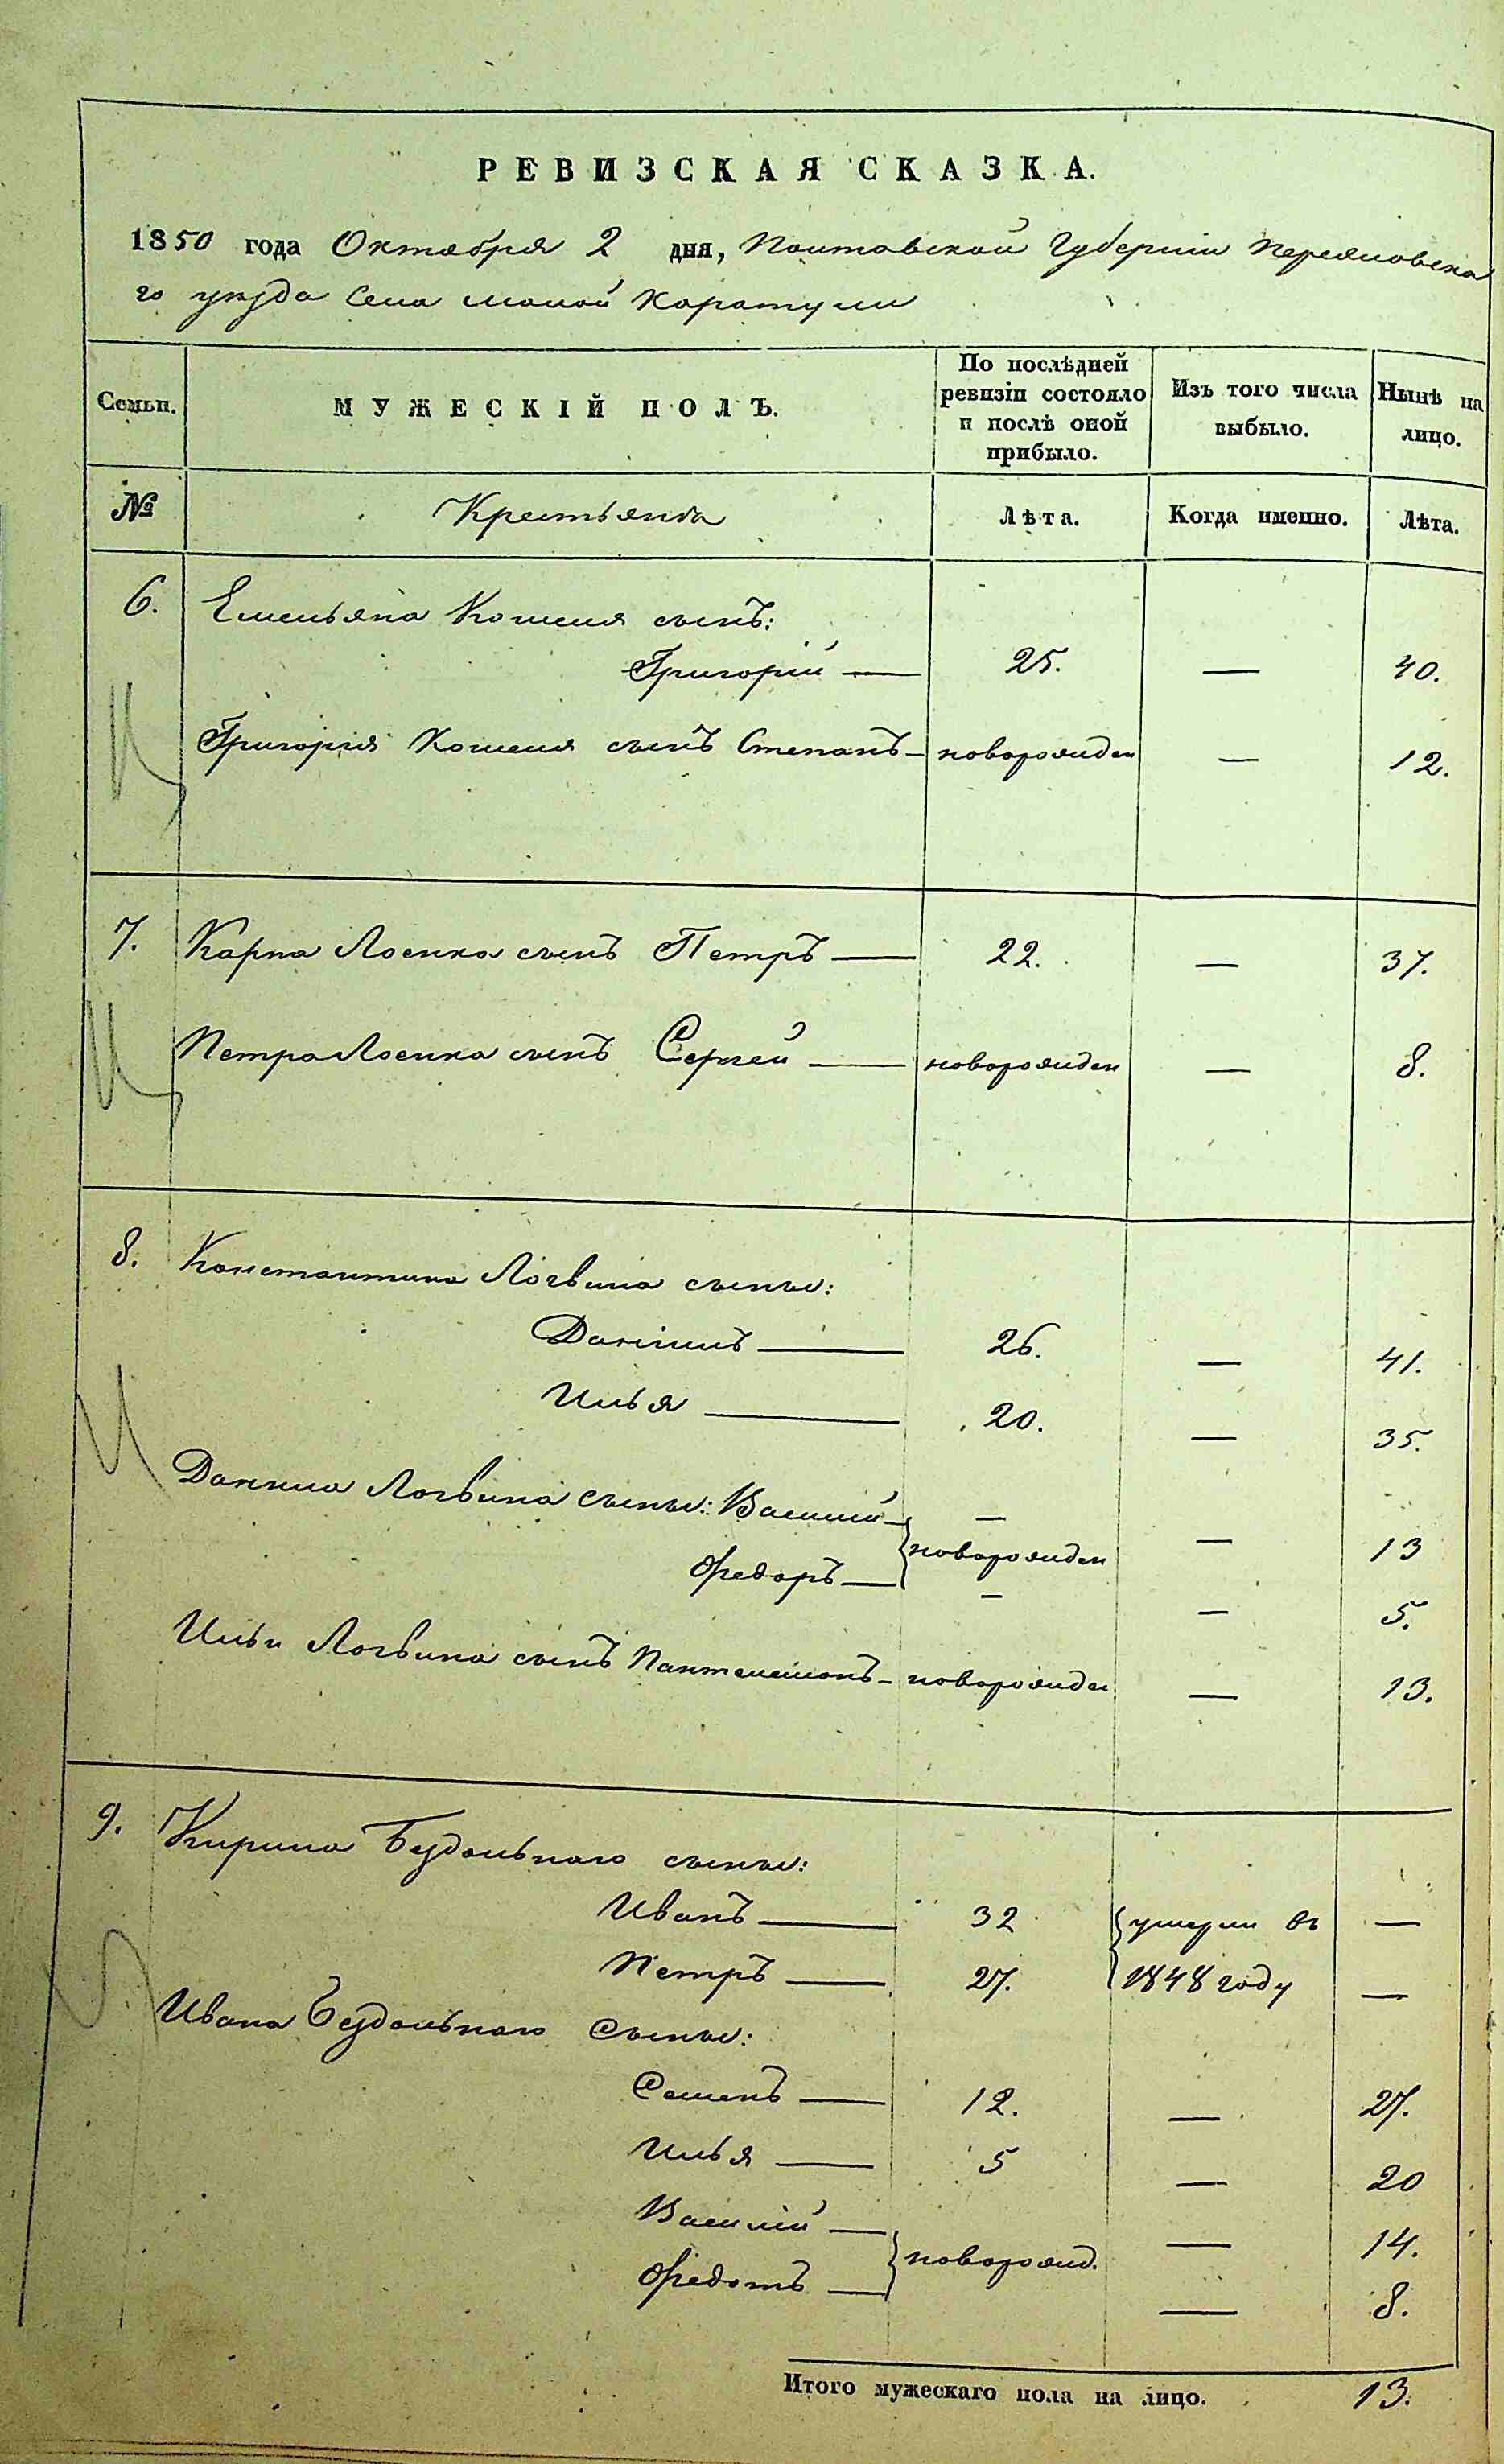 РЕВИЗСКАЯ СКАЗКА.
1850 года Октября 2 дня, Полтавской Губерніи Переяловска
го уѣзда Села малой Каратули
Семьи.
МУЖЕСКІЙ ПОЛЪ.
По послѣдней
ревизіи состояло
и послѣ оной
прибыло.
Изъ того числа
выбыло.
Нынѣ на
лицо.
№ Крестьяне Лѣта. Когда именно. Лѣта.
6. Емельяна Кошеля сынъ:
Григорій — 25. — 40.
Григорія Кошеля сынъ Степанъ — новорожден — 12.
7. Карпа Лоенка сынъ Петръ — 22. — 37.
Петра Лоенка сынъ Сергей — новорожден — 8.
8. Константина Логвина сыны:
Даніилъ — 26. — 41.
Илья — 20. — 35.
Данила Логвина сыны: Василий — новорожден — 13
Федоръ — — 5.
Ильи Логвина сынъ Пантелеимонъ — новорожден — 13.
9. Кирила Бездольнаго сыны:
Иванъ — 32 умерли въ —
Петръ — 27. 1848 году —
Ивана Бездольнаго Сыны:
Семенъ — 12. — 27.
Илья — 5 — 20
Василій — новорожд. — 14.
Федотъ — — 8.
Итого мужескаго пола на лицо. 13.